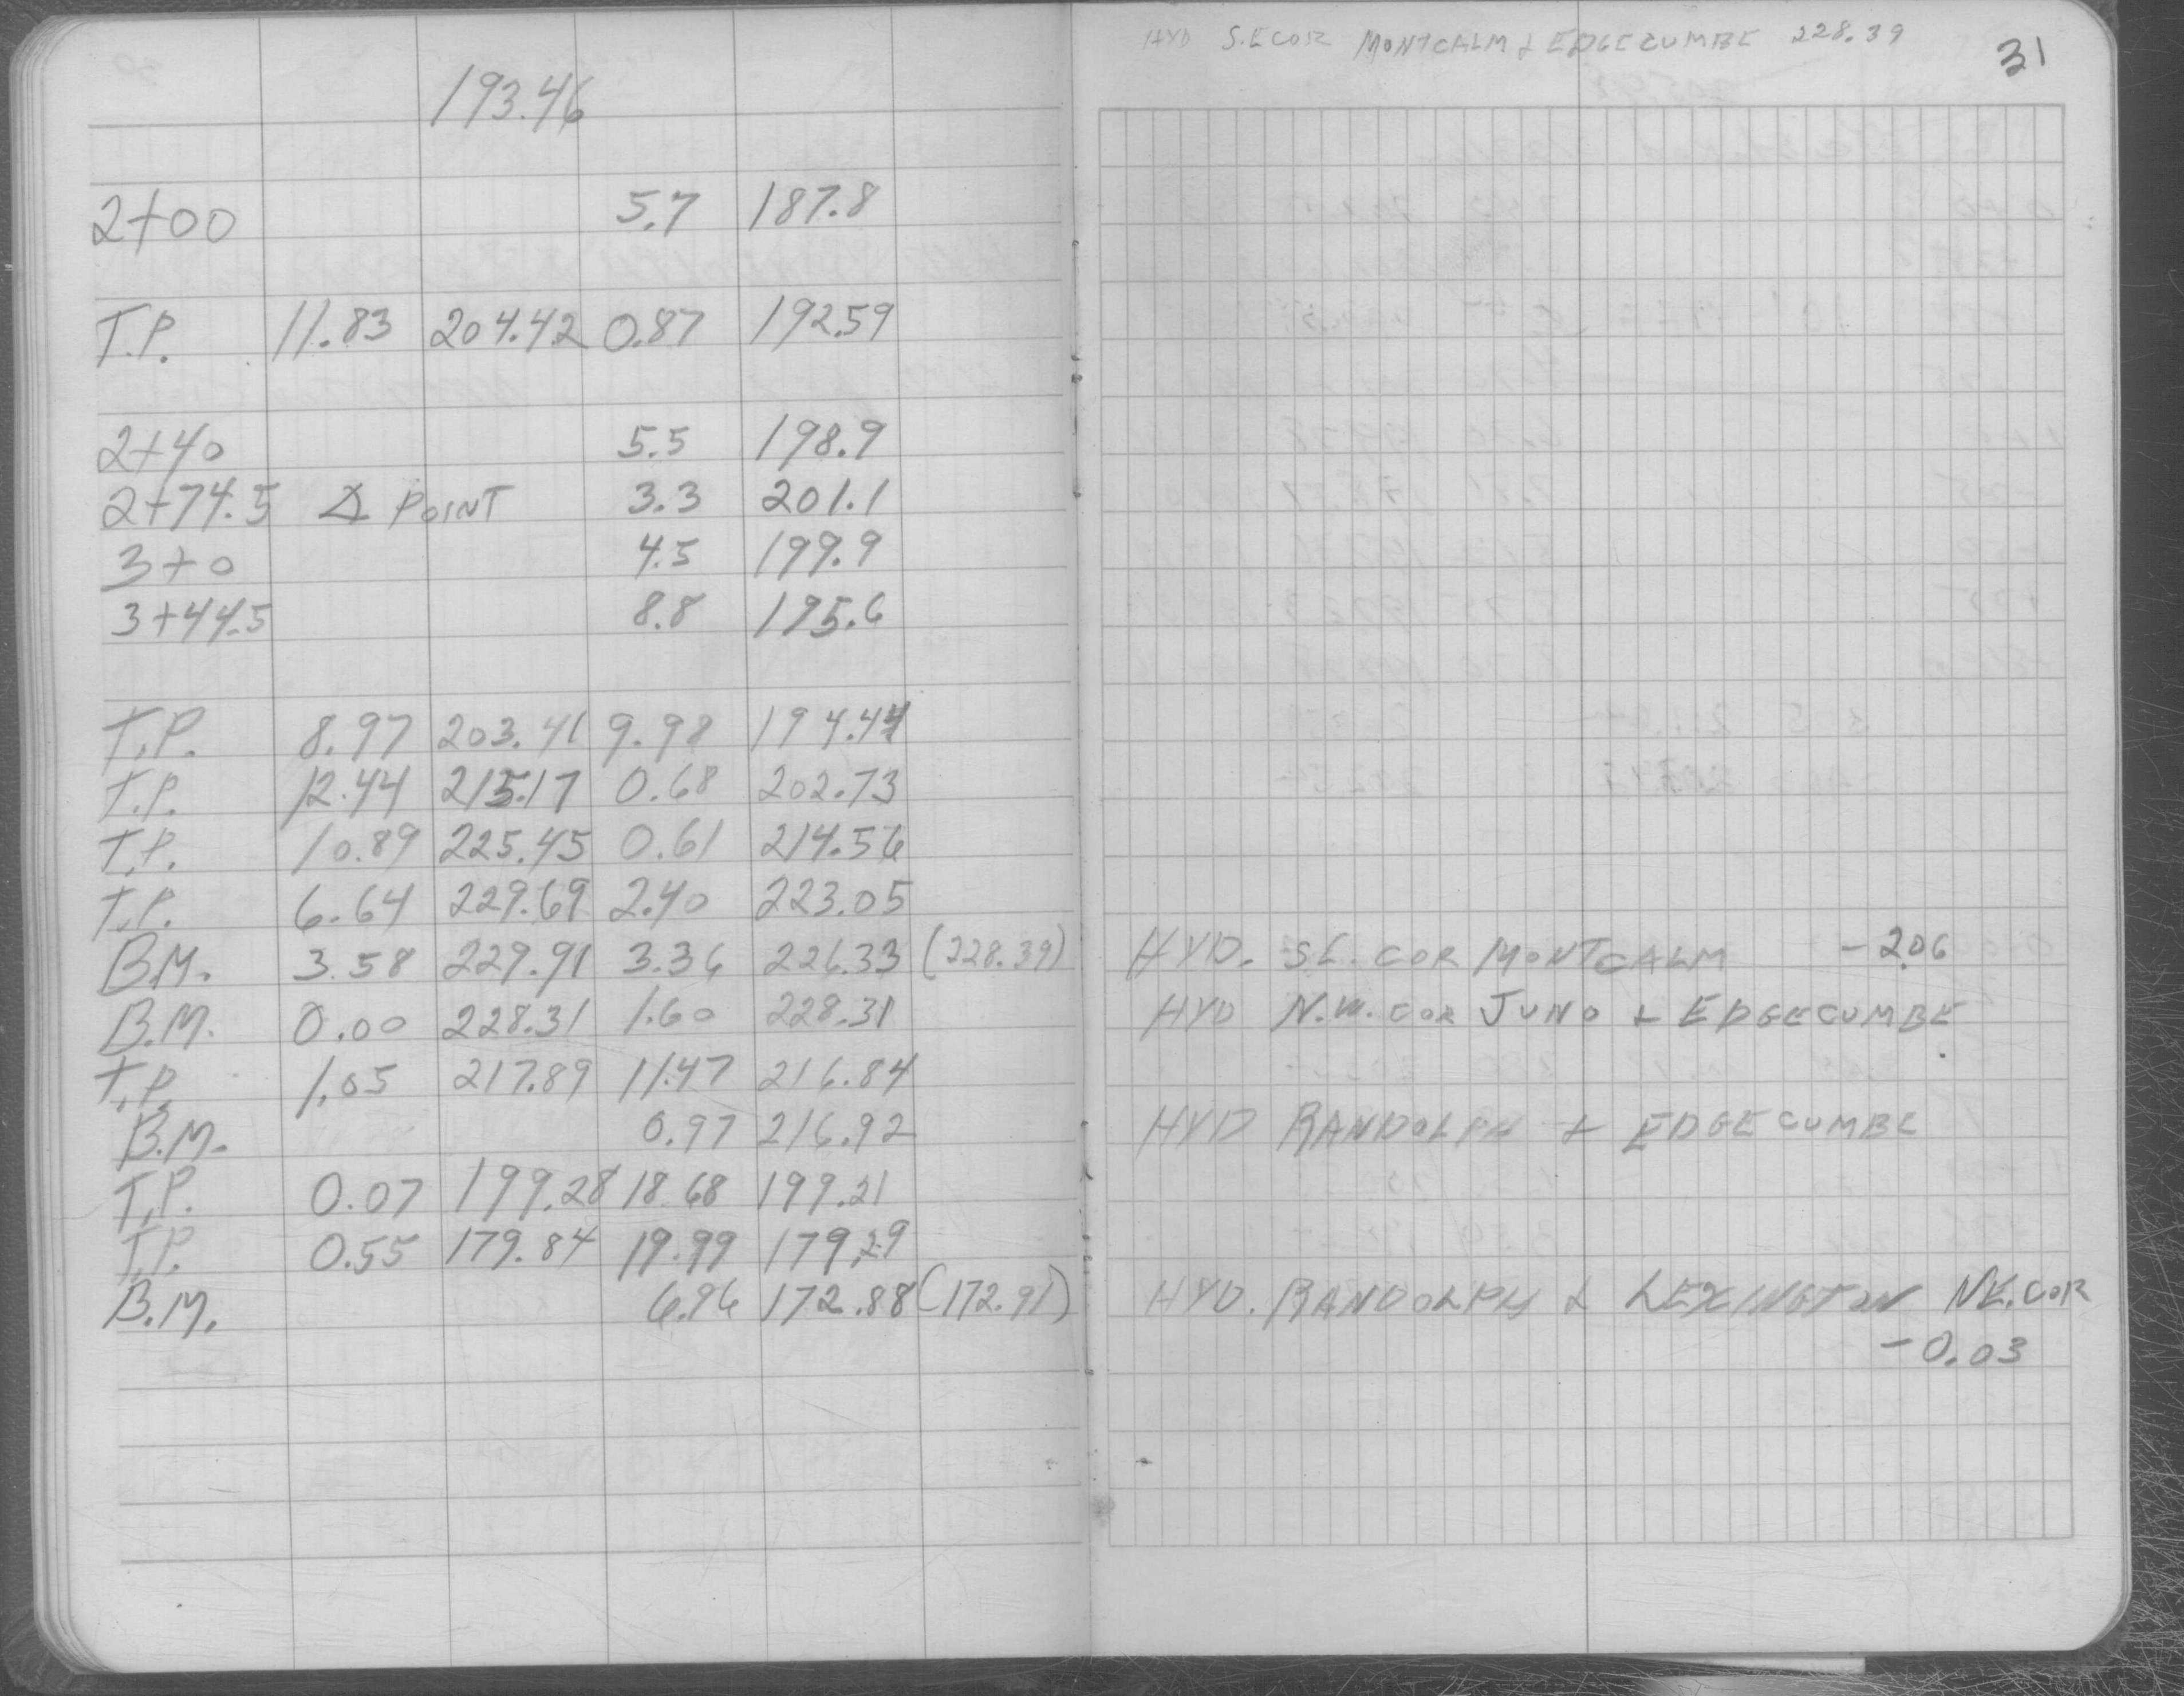 193.46
2+00 5.7 187.8
T.P. 11.83 204.42 0.87 192.59
2+40 5.5 198.9
2+74.5 ∆ POINT 3.3 201.1
3+0 4.5 199.9
3+44.5 8.8 195.6
T.P. 8.97 203.41 9.98 194.44
T.P. 12.44 215.17 0.68 202.73
T.P. 10.89 225.45 0.61 214.56
T.P. 6.64 229.69 2.40 223.05
B.M. 3.58 229.91 3.36 226.33 (228.39)
B.M. 0.00 228.31 1.60 228.31
T.P. 1.05 217.89 11.47 216.84
B.M. 0.97 216.92
T.P. 0.07 199.28 18.68 199.21
T.P. 0.55 179.84 19.99 179.29
B.M. 6.96 172.88 (172.91)
HYD S.E COR MONTCALM & EDGECUMBE 228.39
31
HYD. S.E. COR MONTCALM -2.06
HYD N.W. COR JUNO & EDGECUMBE
HYD RANDOLPH & EDGECUMBE
HYD. RANDOLPH & LEXINGTON NE. COR
-0.03